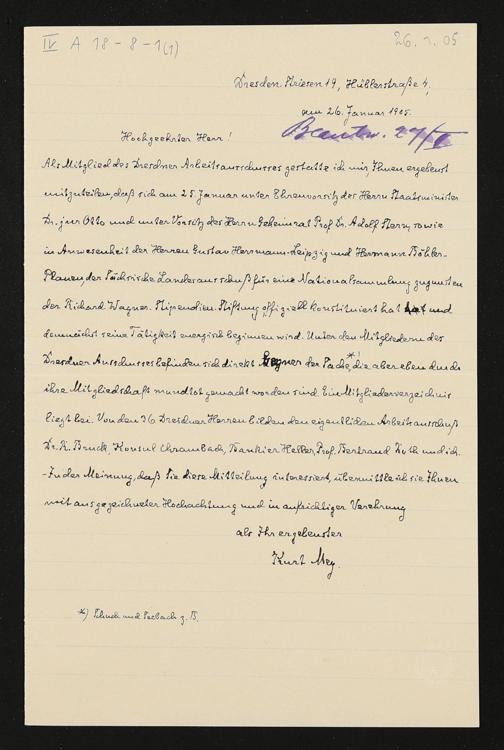 IV A 18-8-1(1)
26.1.05
Dresden Striesen 19, Hüblerstraße 4,
am 26. Januar 1905.
Beantw. 29/I
Hochgeehrter Herr!
Als Mitglied des Dresdner Arbeitsausschusses gestatte ich mir, Ihnen ergebenst
mitzuteilen, daß sich am 25. Januar unter Ehrenvorsitz des Herrn Staatsminister
Dr. jur Otto und unter Vorsitz des Herrn Geheimrat Prof. Dr. Adolf Stern, sowie
in Anwesenheit der Herren Gustav Herrmann-Leipzig und Hermann Böhler-
Plauen, der Sächsische Landesausschuß für eine Nationalsammlung zugunsten
der Richard Wagner-Stipendien-Stiftung offiziell konstituiert hat und
demnächst seine Tätigkeit energisch beginnen wird. Unter den Mitgliedern des
Dresdner Ausschusses befinden sich direkt Gegner der Sache*), die aber eben durch
ihre Mitgliedschaft mundtot gemacht worden sind. Ein Mitgliederverzeichnis
liegt bei. Von den 36 Dresdner Herren bilden den eigentlichen Arbeitsausschuß
Dr. K. Bruck, Konsul Chrambach, Bankier Heller, Prof. Bertrand Roth und ich.
- In der Meinung, daß Sie diese Mitteilung interessiert, übermittle ich sie Ihnen
mit ausgezeichneter Hochachtung und in aufrichtiger Verehrung
als Ihr ergebenster
Kurt Mey.
*) Schuch und z. B.